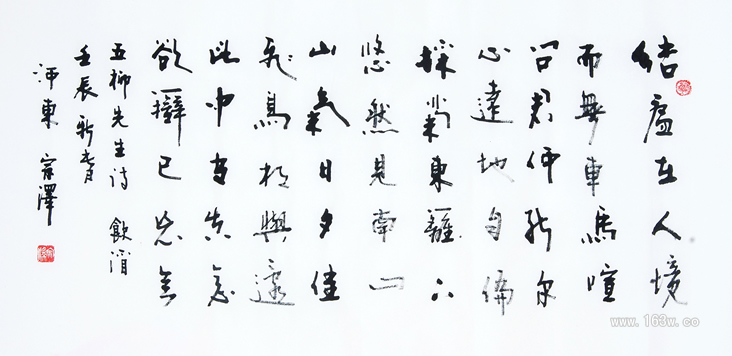 结廬在人境
而無車馬喧
问君何能尔
心遠地自偏
採菊東籬下
悠然見南山
山氣日夕佳
飛鳥相與還
此中有真意
欲辯已忘言
五柳先生诗 飲酒
壬辰新春
東 澤
www.163w.co